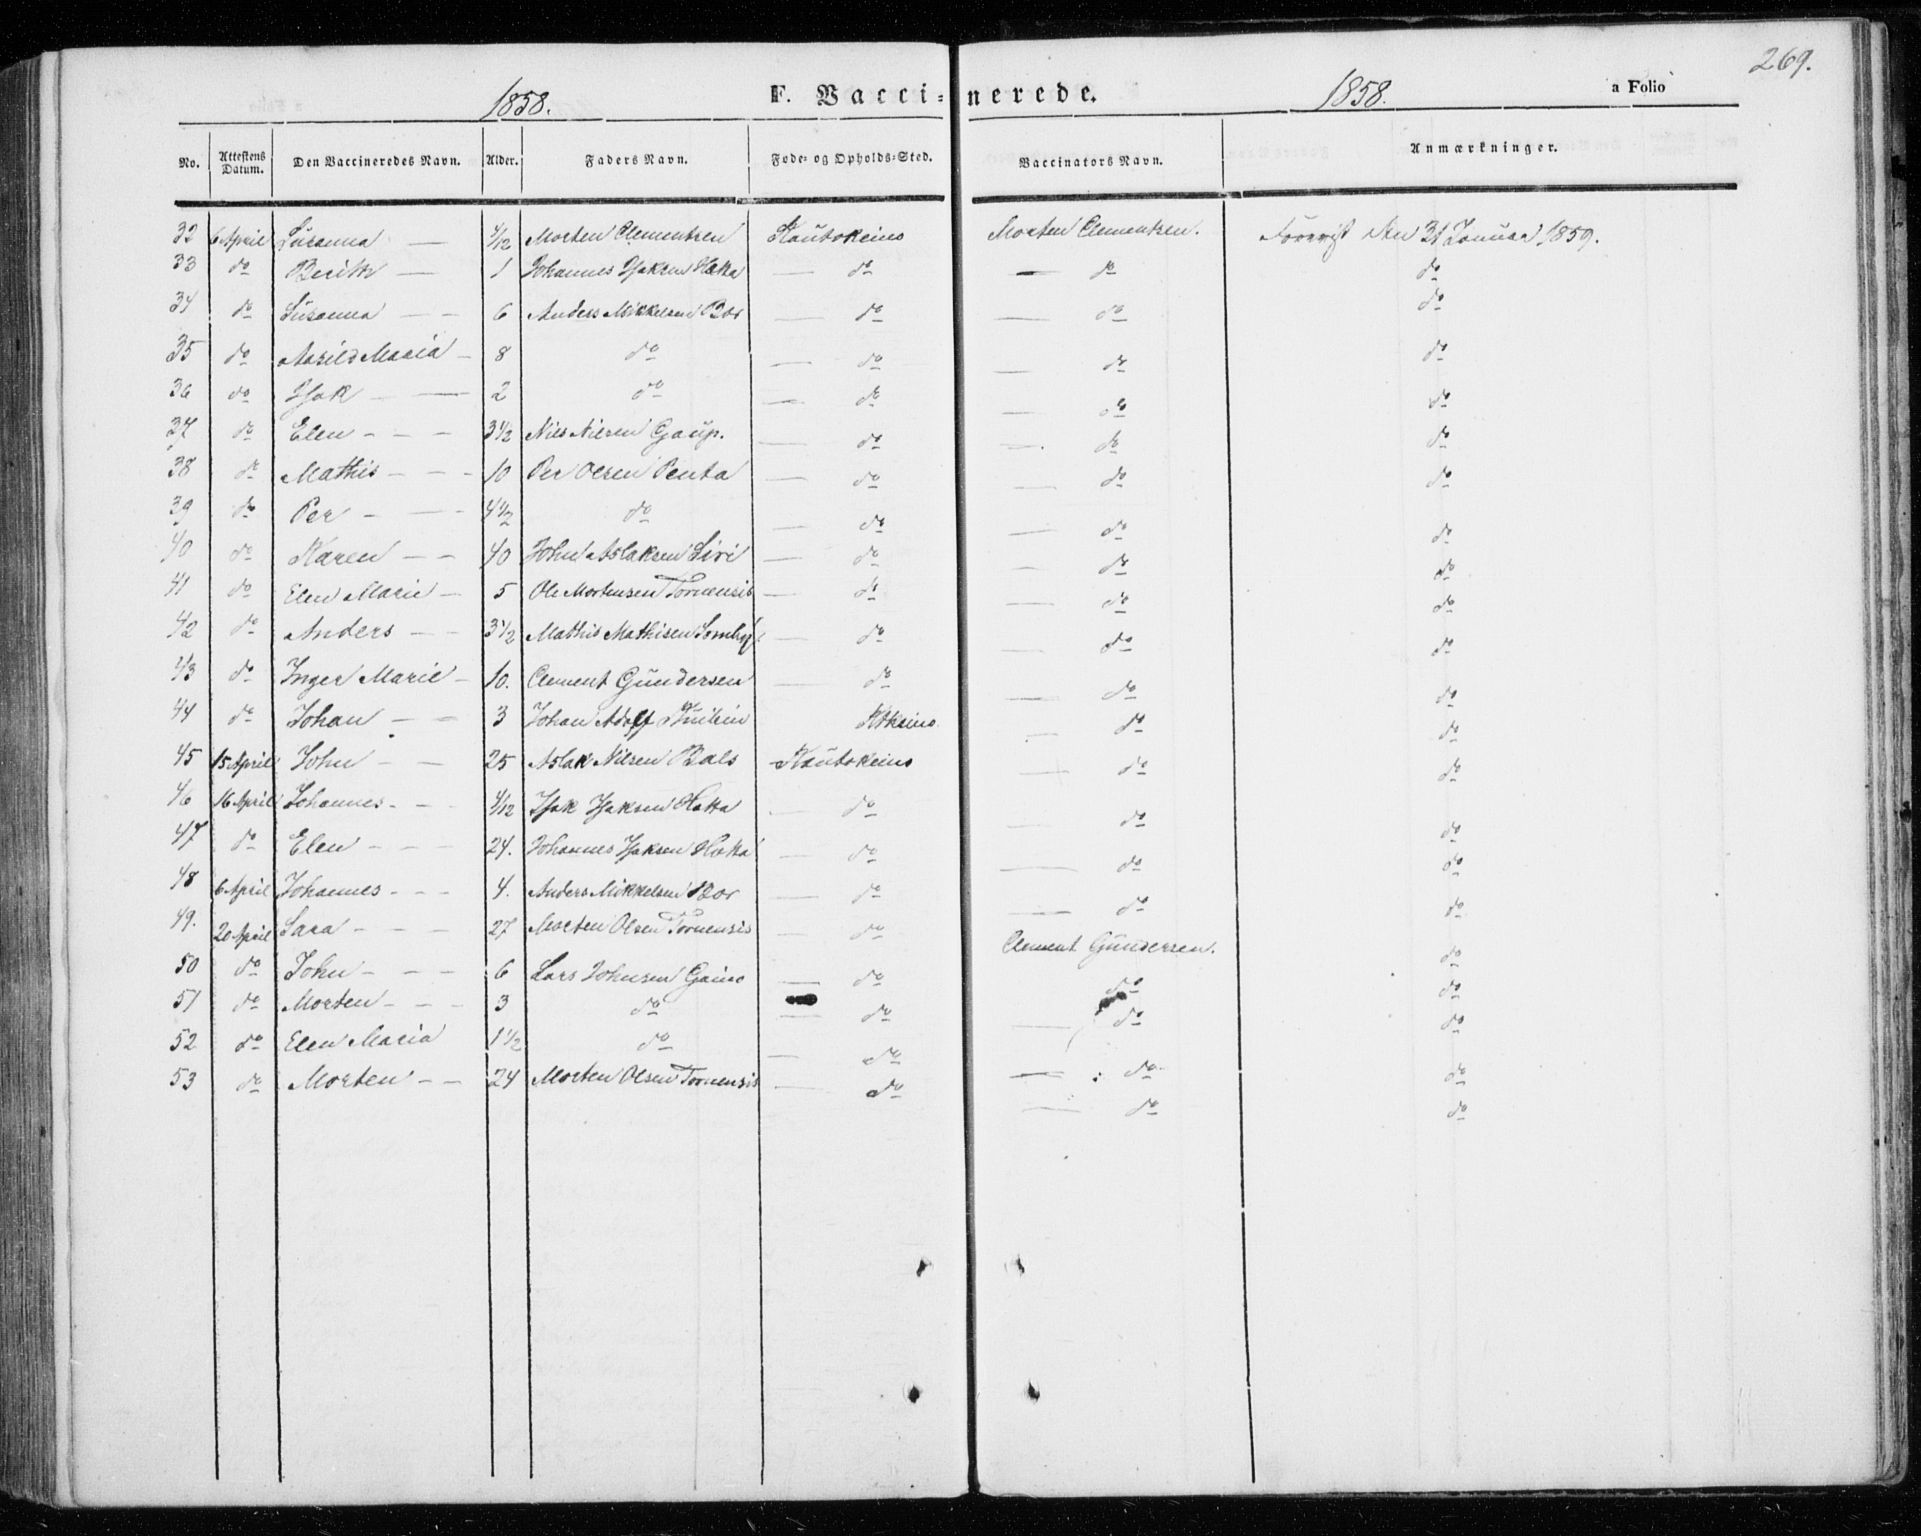 269.
1858. F. Vacci- nerede. 1858. a Folio
No. Attestens Datum. Den Vaccineredes Navn. Alder. Faders Navn. Føde- og Opholds-Sted. Vaccinators Navn. Anmærkninger.
32 6 April Susanna — 4/12 Morten Clementsen Kautokeino Morten Clementsen. Foreviist den 31 Januar 1859.
33 do Berith — 1 Johannes Isaksen Hætta — do — do do
34 do Susanna — — 6 Anders Mikkelsen Bær — do — do do
35 do Marild Maria — 8 do — do — do do
36 do Isak — — 2 do — do — do do
37 do Elen — — — 3 1/2 Nils Nilsen Gaup. — do — do do
38 do Mathis — — — 10 Per Olsen Penta — do — do do
39 do Per — — — 4 1/2 do — do — do do
40 do Karen — — 40 John Aslaksen Siri — do — do do
41 do Elen Marie — 5 Ole Mortensen Tornensis — do — do do
42 do Anders — — 3 1/2 Mathis Mathisen — do — do do
43 do Inger Marie — 10. Clement Gundersen — do — do do
44 do Johan — — 3 Johan Adolf Ktkeino do do
45 15 April John — — 25 Aslak Nilsen Bals Kautokeino — do do
46 16 April Johannes — — 4/12 Isak Isaksen Hætta — do — do do
47 do Elen — — — 24. Johannes Isaksen Hætta — do — do do
48 6 April Johannes — — — 4. Anders Mikkelsen Bær — do — do do
49. 20 April Sara — — — 27 Morten Olsen Tornensis — do Clement Gundersen. do
50 do John — — — 6 Lars Johnsen Gaino — do do do
51 do Morten — — — 3 do — do — do do
52 do Elen Maria 1 1/2 do — do — do do
53 do Morten — — 24 Morten Olsen Tornensis — do — do do